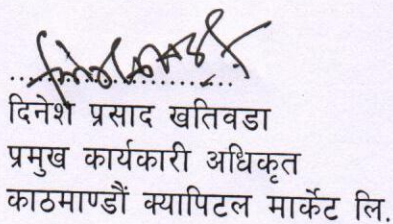 दिनेश प्रसाद खतिवडा
प्रमुख कार्यकारी अधिकृत
काठमाण्डौं क्यापिटल मार्केट लि.